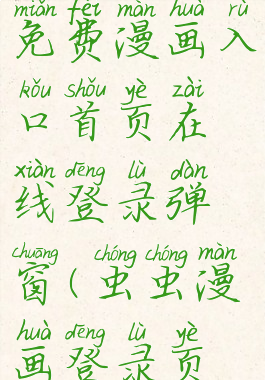 miǎn fèi màn huà rù
免费漫画入
kǒu shǒu yè zài
口首页在
xiàn dēng lù dàn
线登录弹
chuāng chóng chóng màn
窗(虫虫漫
huà dēng lù yè
画登录页